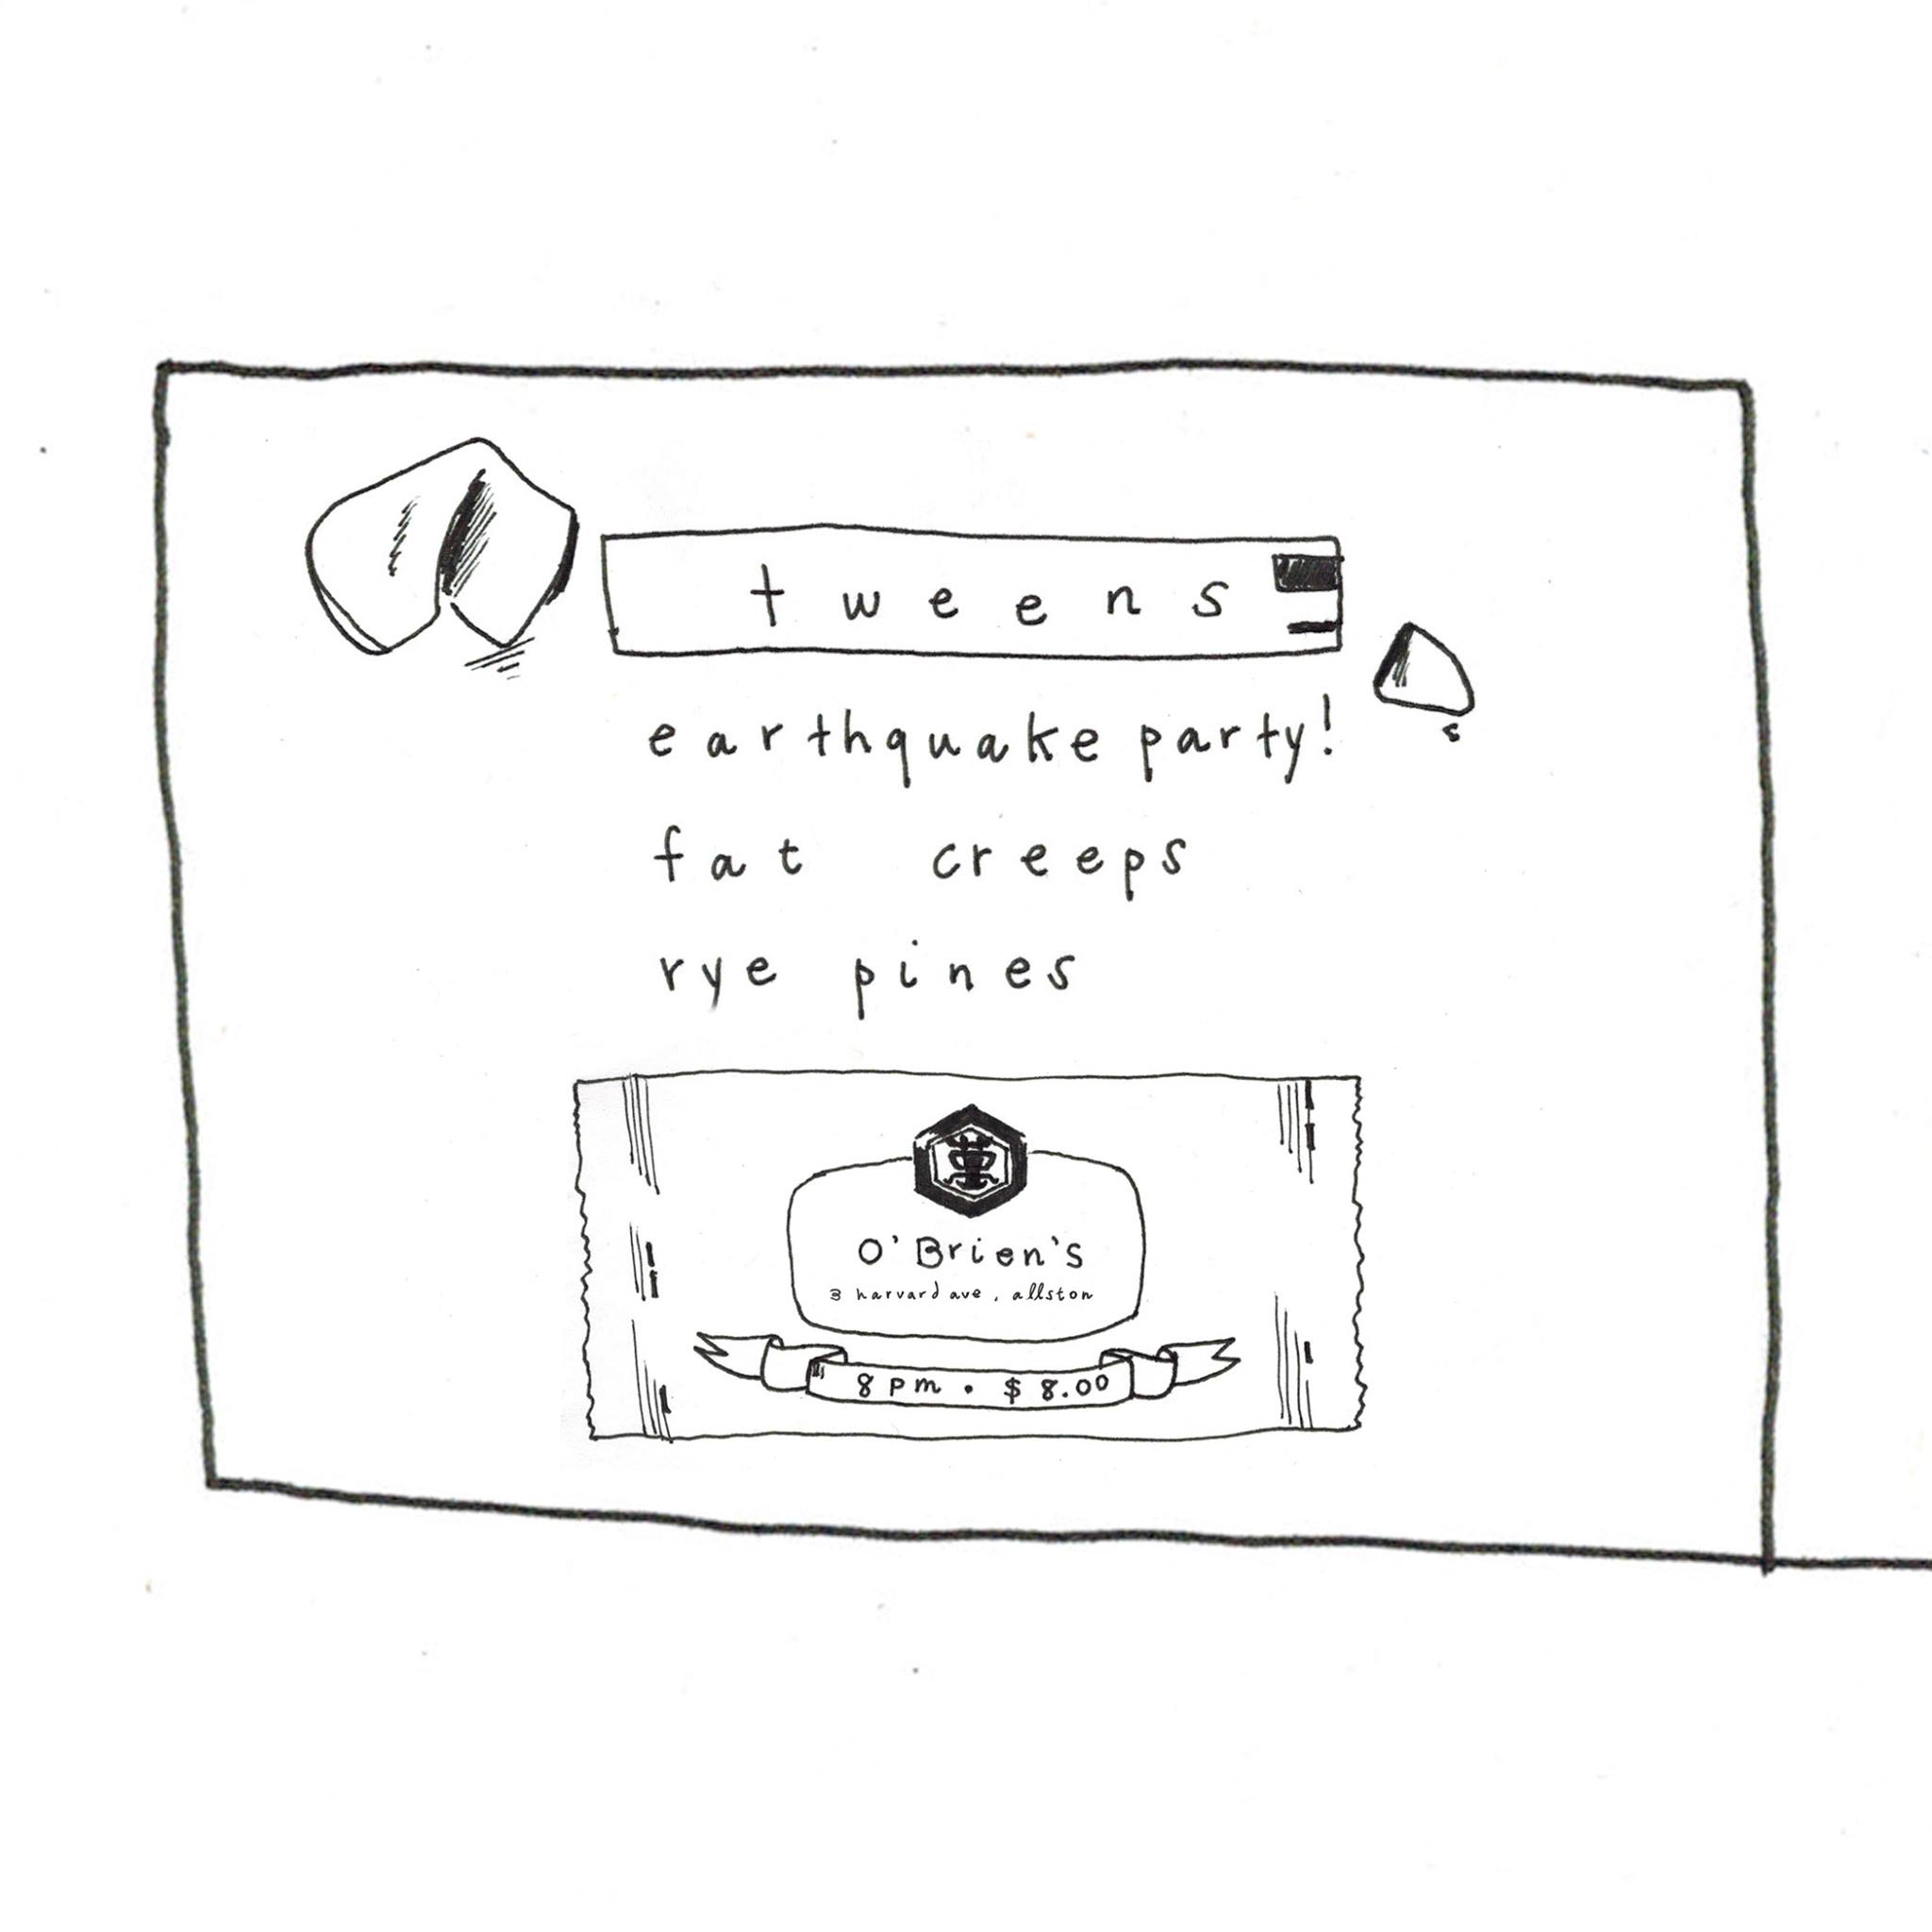 tweens
earthquake party!
fat creeps
rye pines
O'Brien's
3 harvard ave, allston
8pm • $8.00